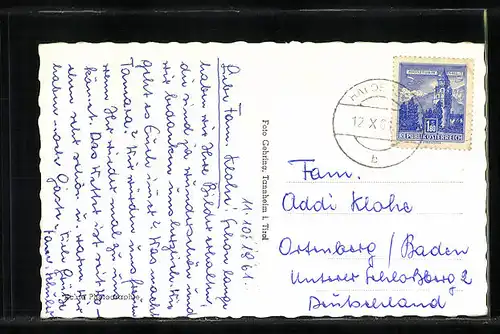 11.10.1961.
Liebe Fam. Klohe! Schon lange
haben wir Ihre Bilder erhalten,
die sind ja wunderschön und
wir bedanken uns herzlich. Wie
geht es Euch sonst? Was macht
Tamara? Wir würden uns freuen
wenn Ihr wieder mal zu uns
kämt. Das Wetter ist seit
sehr schön u. warm.
haben noch Gäste. Viele Grüße
Fam.
Foto Gehring, Tannheim i. Tirol
Echte Photographie
12.X.61
b
REPUBLIK ÖSTERREICH
Fam.
Addi Klohe
Ortenberg / Baden
Unterer Schloßberg 2
Deutschland